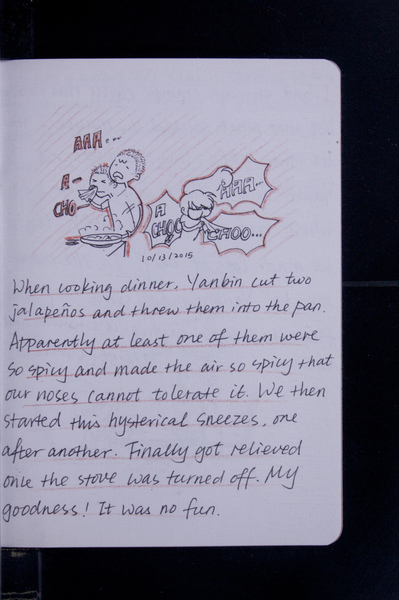 AAA...
A-
CHO
A
CHOO
AAA...
CHOO...
10/13/2015
When cooking dinner, Yanbin cut two
jalapeños and threw them into the pan.
Apparently at least one of them were
so spicy and made the air so spicy that
our noses cannot tolerate it. We then
started this hysterical sneezes, one
after another. Finally got relieved
once the stove was turned off. My
goodness! It was no fun.